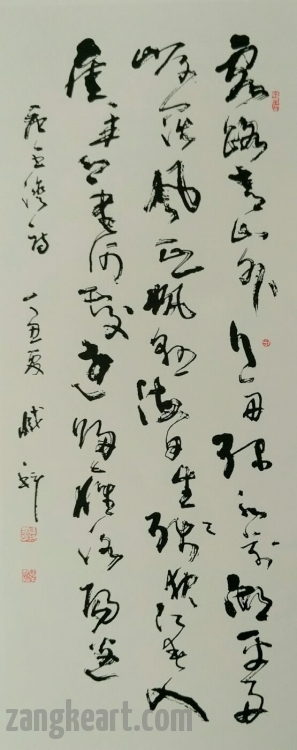 客路青山外行舟绿水前潮平两
岸阔风正一帆悬海日生残夜江春入
旧年乡书何处达归雁洛阳边
唐王湾诗 丁丑夏 臧科
zangkeart.com